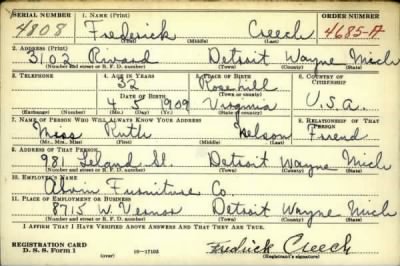 SERIAL NUMBER 1. NAME (Print) ORDER NUMBER
4808 Frederick Creech 4685-A
(First) (Middle) (Last)
2. ADDRESS (Print)
3102 Rivard Detroit Wayne Mich
(Number and street or R. F. D. number) (Town) (County) (State)
3. TELEPHONE 4. AGE IN YEARS 5. PLACE OF BIRTH 6. COUNTRY OF CITIZENSHIP
32 Rose hill
DATE OF BIRTH (Town or county)
4 5 1909 Virginia U.S.a.
(Exchange) (Number) (Mo.) (Day) (Yr.) (State or country)
7. NAME OF PERSON WHO WILL ALWAYS KNOW YOUR ADDRESS 8. RELATIONSHIP OF THAT PERSON
Miss Ruth Nelson Friend
(Mr., Mrs., Miss) (First) (Middle) (Last)
9. ADDRESS OF THAT PERSON
981 Leland St. Detroit Wayne Mich
(Number and street or R. F. D. number) (Town) (County) (State)
10. EMPLOYER'S NAME
Alvin Furniture Co.
11. PLACE OF EMPLOYMENT OR BUSINESS
8715 W. Vernor Detroit Wayne Mich
(Number and street or R. F. D. number) (Town) (County) (State)
I AFFIRM THAT I HAVE VERIFIED ABOVE ANSWERS AND THAT THEY ARE TRUE.
REGISTRATION CARD
D. S. S. Form 1 (over) 16-17105 Fredrick Creech
(Registrant's signature)